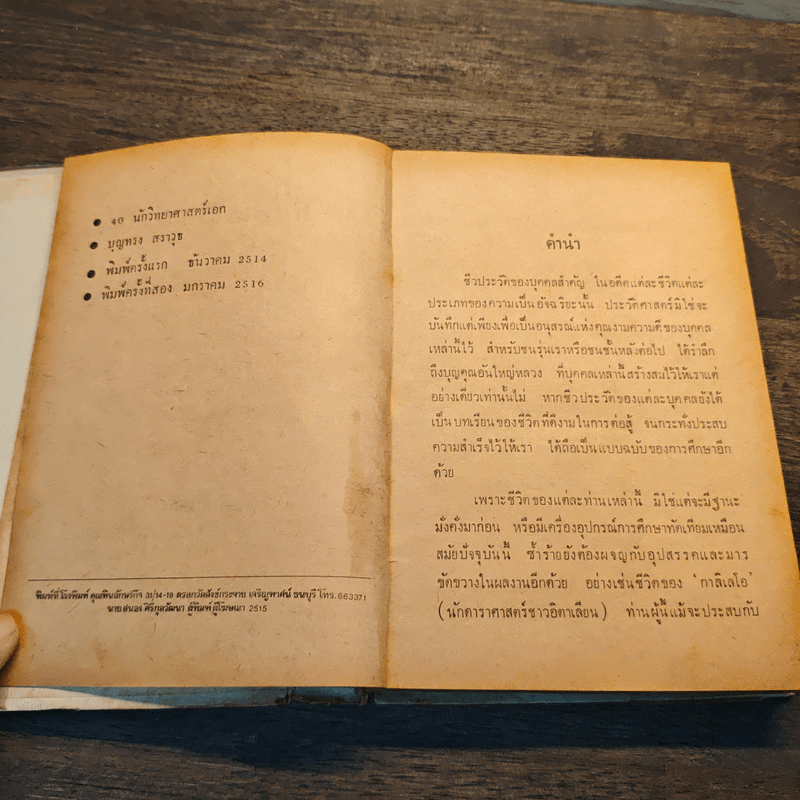 40 นักวิทยาศาสตร์เอก
บุญทรง สราวุธ
พิมพ์ครั้งแรก ธันวาคม 2514
พิมพ์ครั้งที่สอง มกราคม 2516
พิมพ์ที่โรงพิมพ์ คุณพินอักษรกิจ 31/14-19 ตรอกวัดสังข์กระจาย เจริญพาศน์ ธนบุรี โทร. 663371
นายสนอง ศิริกุลวัฒนา ผู้พิมพ์ ผู้โฆษณา 2515
คำนำ
ชีวประวัติของบุคคลสำคัญ ในอดีตแต่ละชีวิตแต่ละ
ประเภทของความเป็นอัจฉริยะนั้น ประวัติศาสตร์มิใช่จะ
บันทึกแต่เพียงเพื่อเป็นอนุสรณ์แห่งคุณงามความดีของบุคคล
เหล่านี้ไว้ สำหรับชนรุ่นเราหรือชนชั้นหลังต่อไป ได้รำลึก
ถึงบุญคุณอันใหญ่หลวง ที่บุคคลเหล่านี้สร้างสมไว้ให้เราแต่
อย่างเดียวเท่านั้นไม่ หากชีวประวัติของแต่ละบุคคลยังได้
เป็นบทเรียนของชีวิตที่ดีงามในการต่อสู้ จนกระทั่งประสบ
ความสำเร็จไว้ให้เรา ได้ถือเป็นแบบฉบับของการศึกษาอีก
ด้วย
เพราะชีวิตของแต่ละท่านเหล่านี้ มิใช่แต่จะมีฐานะ
มั่งคั่งมาก่อน หรือมีเครื่องอุปกรณ์การศึกษาทัดเทียมเหมือน
สมัยปัจจุบันนี้ ซ้ำร้ายยังต้องผจญกับอุปสรรคและมาร
ขัดขวางในผลงานอีกด้วย อย่างเช่นชีวิตของ 'กาลิเลโอ'
(นักดาราศาสตร์ชาวอิตาเลียน) ท่านผู้นี้แม้จะประสบกับ